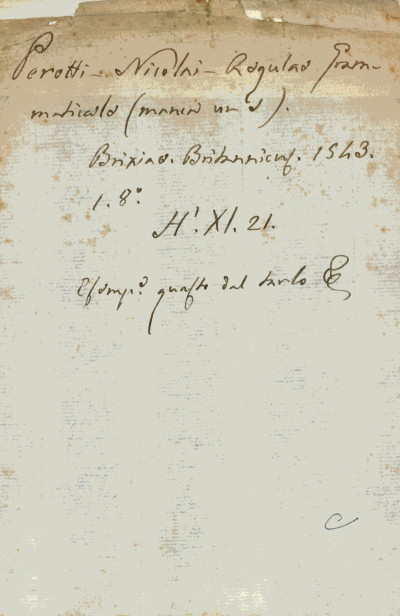 Perotti - Nicolai - Regulae Gram-
maticale (manca un s).
Brixiae. Britannicus. 1543.
1. 8°.
H'. XI. 21.
Esemp.° guasto dal tarlo
C